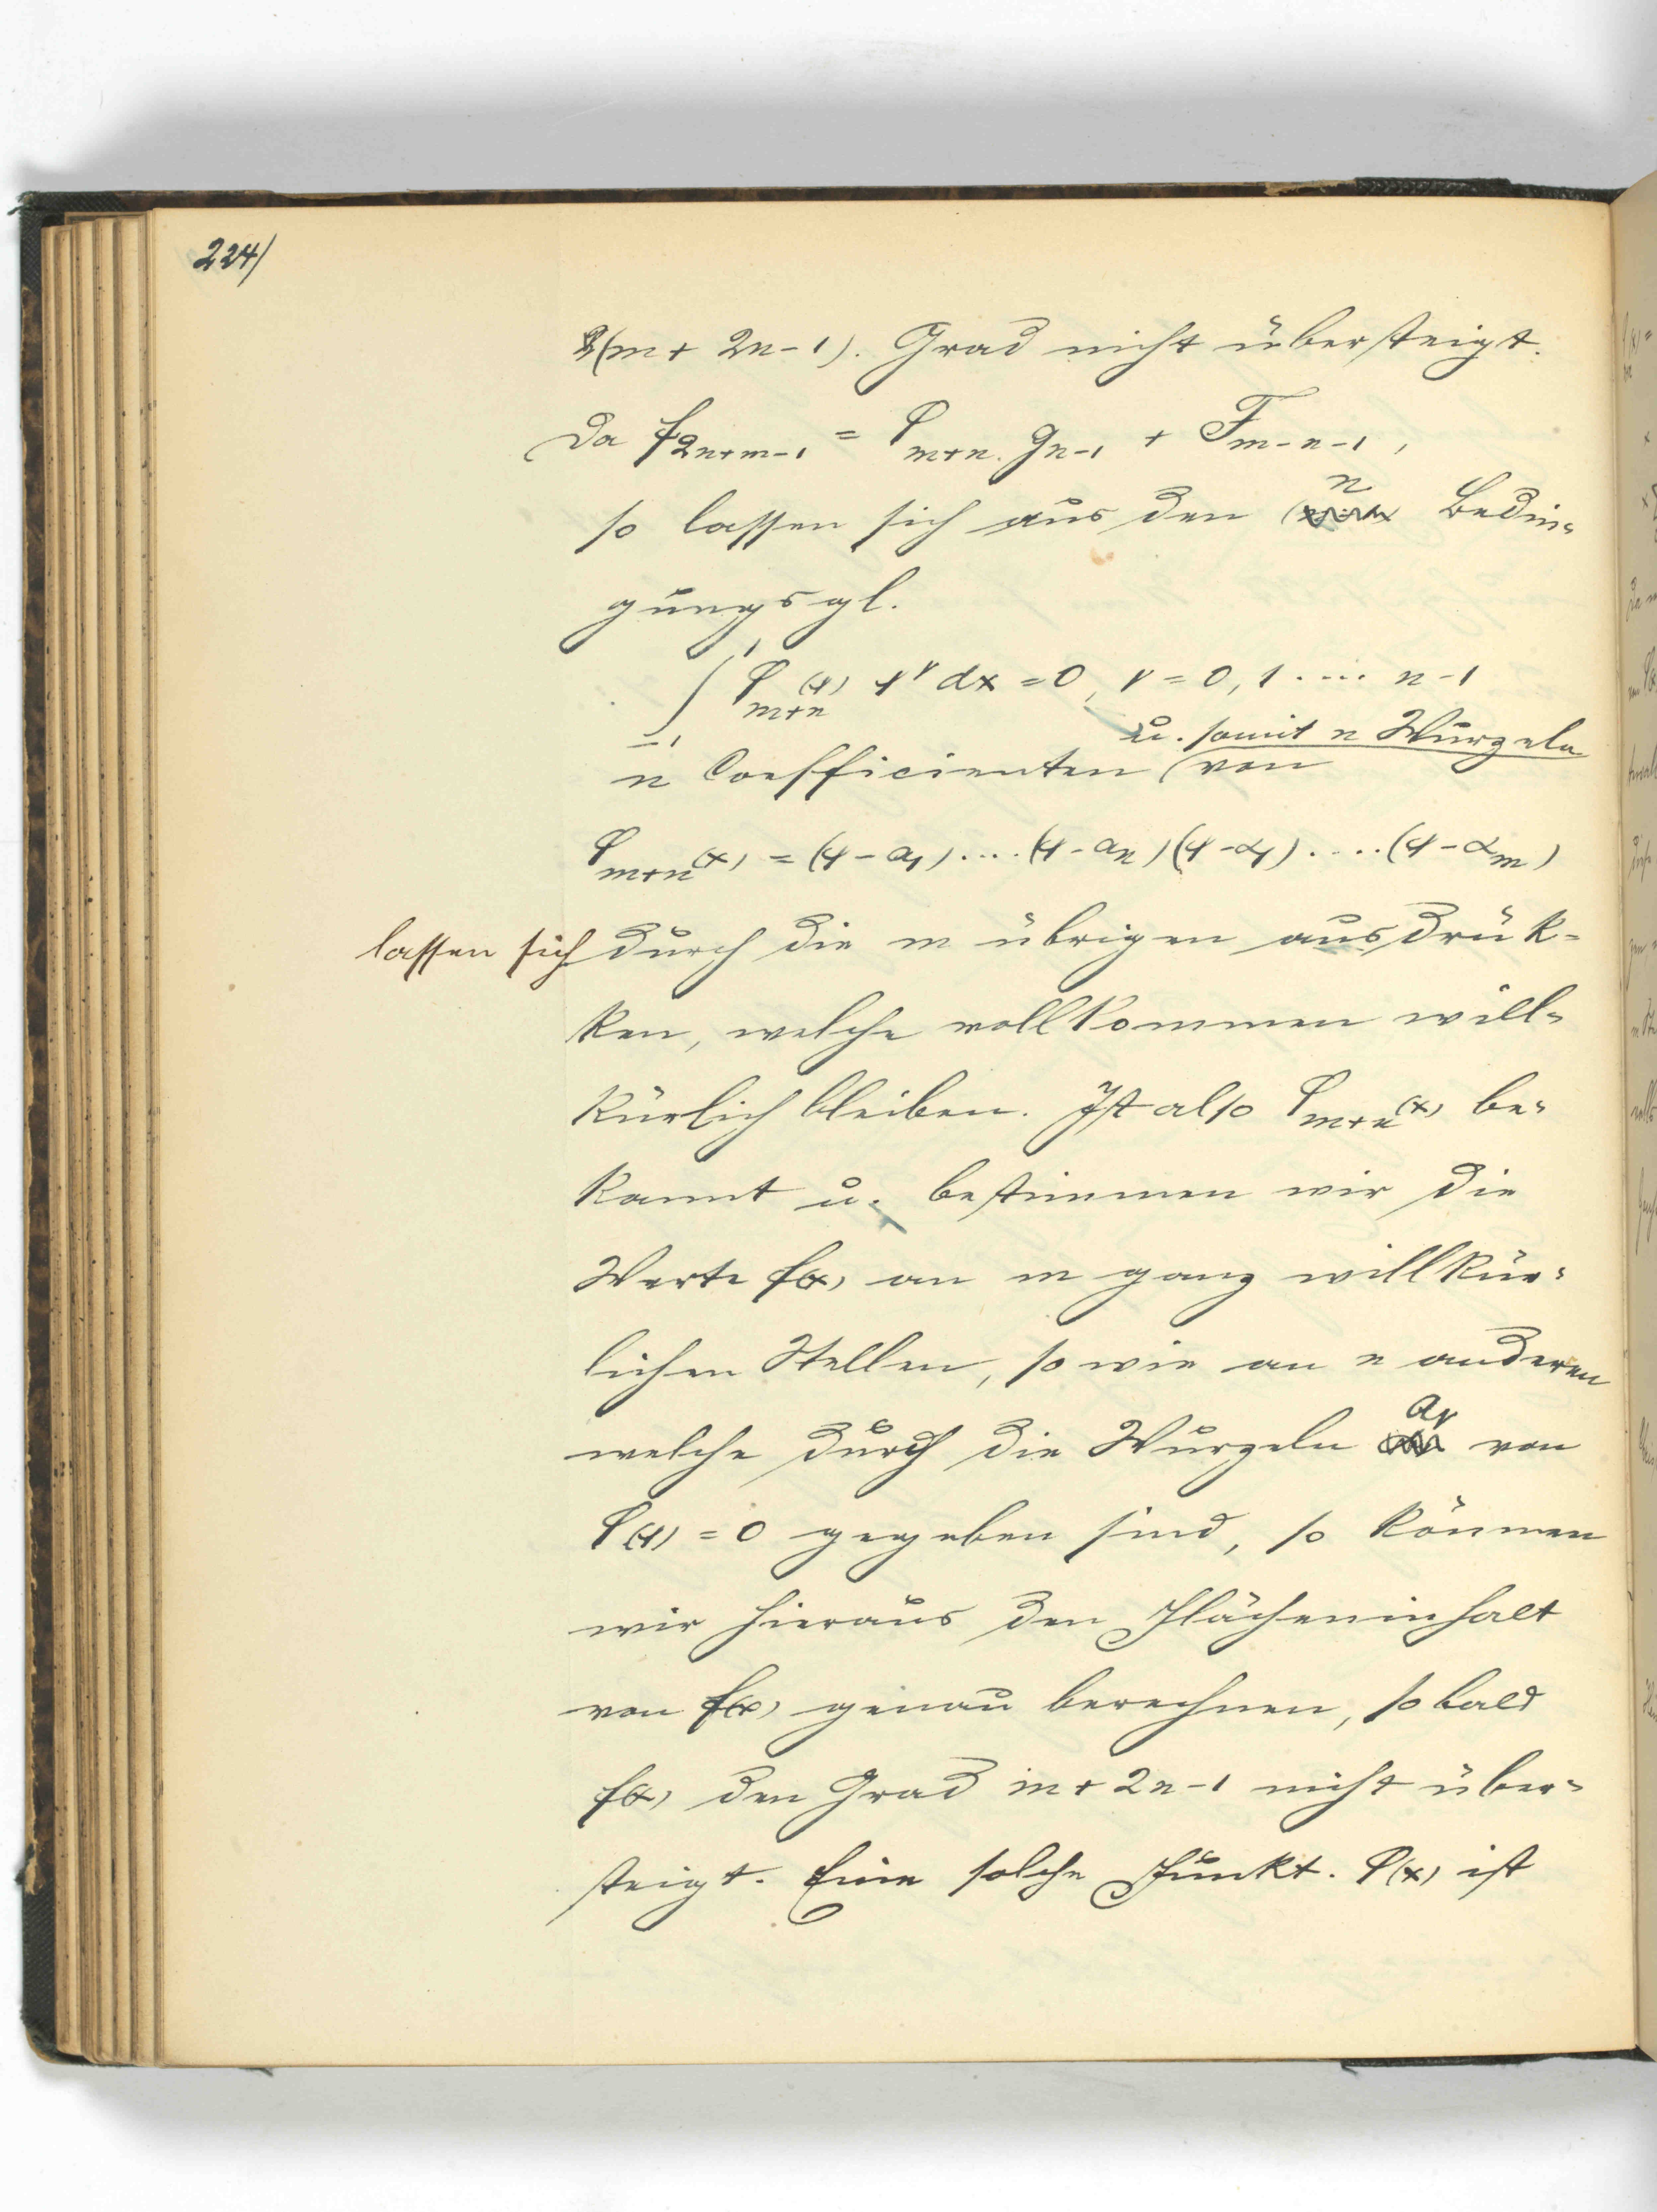 224/
(m + 2n-1). Grad nicht übersteigt.
Da f_{2n+m-1} = φ_{m+n} . g_{n-1} + F_{m-n-1},
so lassen sich aus den n Bedin-
gungsgl.
∫_{-1}^{1} φ_{m+n}(x) x^ν dx = 0, ν = 0, 1 .... n-1
u. somit n Wurzeln
n Coefficienten von
φ_{m+n}(x) = (x-a_1) .... (x-a_n)(x-α_1) .... (x-α_m)
lassen sich durch die m übrigen ausdrük-
ken, welche vollkommen will-
kürlich bleiben. Ist also φ_{m+n}(x) be-
kannt u. bestimmen wir die
Werte f(x) an m ganz willkür-
lichen Stellen, so wie an n anderen
welche durch die Wurzeln a_ν von
φ(x) = 0 gegeben sind, so können
wir hieraus den Flächeninhalt
von f(x) genau berechnen, sobald
f(x) den Grad m + 2n-1 nicht über-
steigt. Eine solche Funkt. φ(x) ist